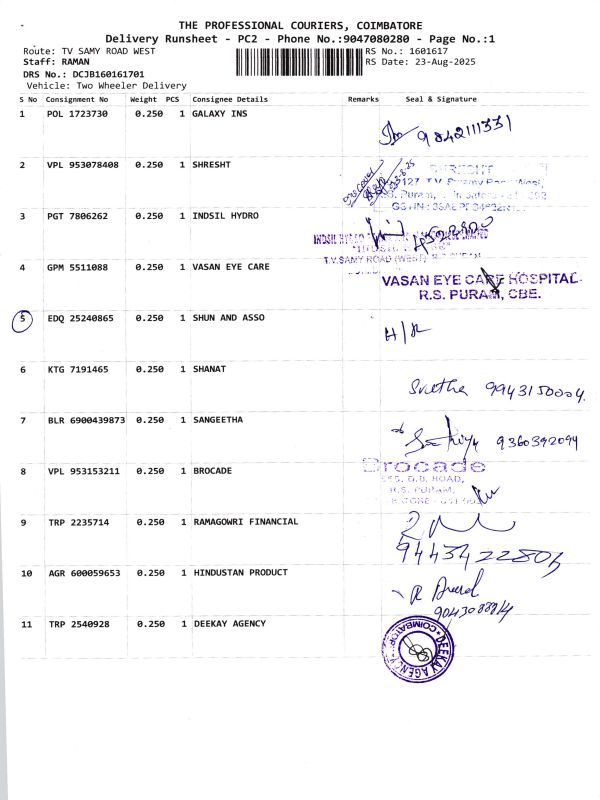 THE PROFESSIONAL COURIERS, COIMBATORE
Delivery Runsheet - PC2 - Phone No.:9047080280 - Page No.:1
Route: TV SAMY ROAD WEST
RS No.: 1601617
Staff: RAMAN
RS Date: 23-Aug-2025
DRS No.: DCJB160161701
Vehicle: Two Wheeler Delivery
S No Consignment No Weight PCS Consignee Details Remarks Seal & Signature
1 POL 1723730 0.250 1 GALAXY INS
9842111331
2 VPL 953078408 0.250 1 SHRESHT
3 PGT 7806262 0.250 1 INDSIL HYDRO
T.V.SAMY ROAD (WEST)
4 GPM 5511088 0.250 1 VASAN EYE CARE
VASAN EYE CARE HOSPITAL
R.S. PURAM, CBE.
5 EDQ 25240865 0.250 1 SHUN AND ASSO
6 KTG 7191465 0.250 1 SHANAT
9943150004
7 BLR 6900439873 0.250 1 SANGEETHA
9360392094
8 VPL 953153211 0.250 1 BROCADE
Brocade
D.B. ROAD,
R.S. PURAM,
9 TRP 2235714 0.250 1 RAMAGOWRI FINANCIAL
10 AGR 600059653 0.250 1 HINDUSTAN PRODUCT
11 TRP 2540928 0.250 1 DEEKAY AGENCY
DEEKAY AGENCY
COIMBATORE